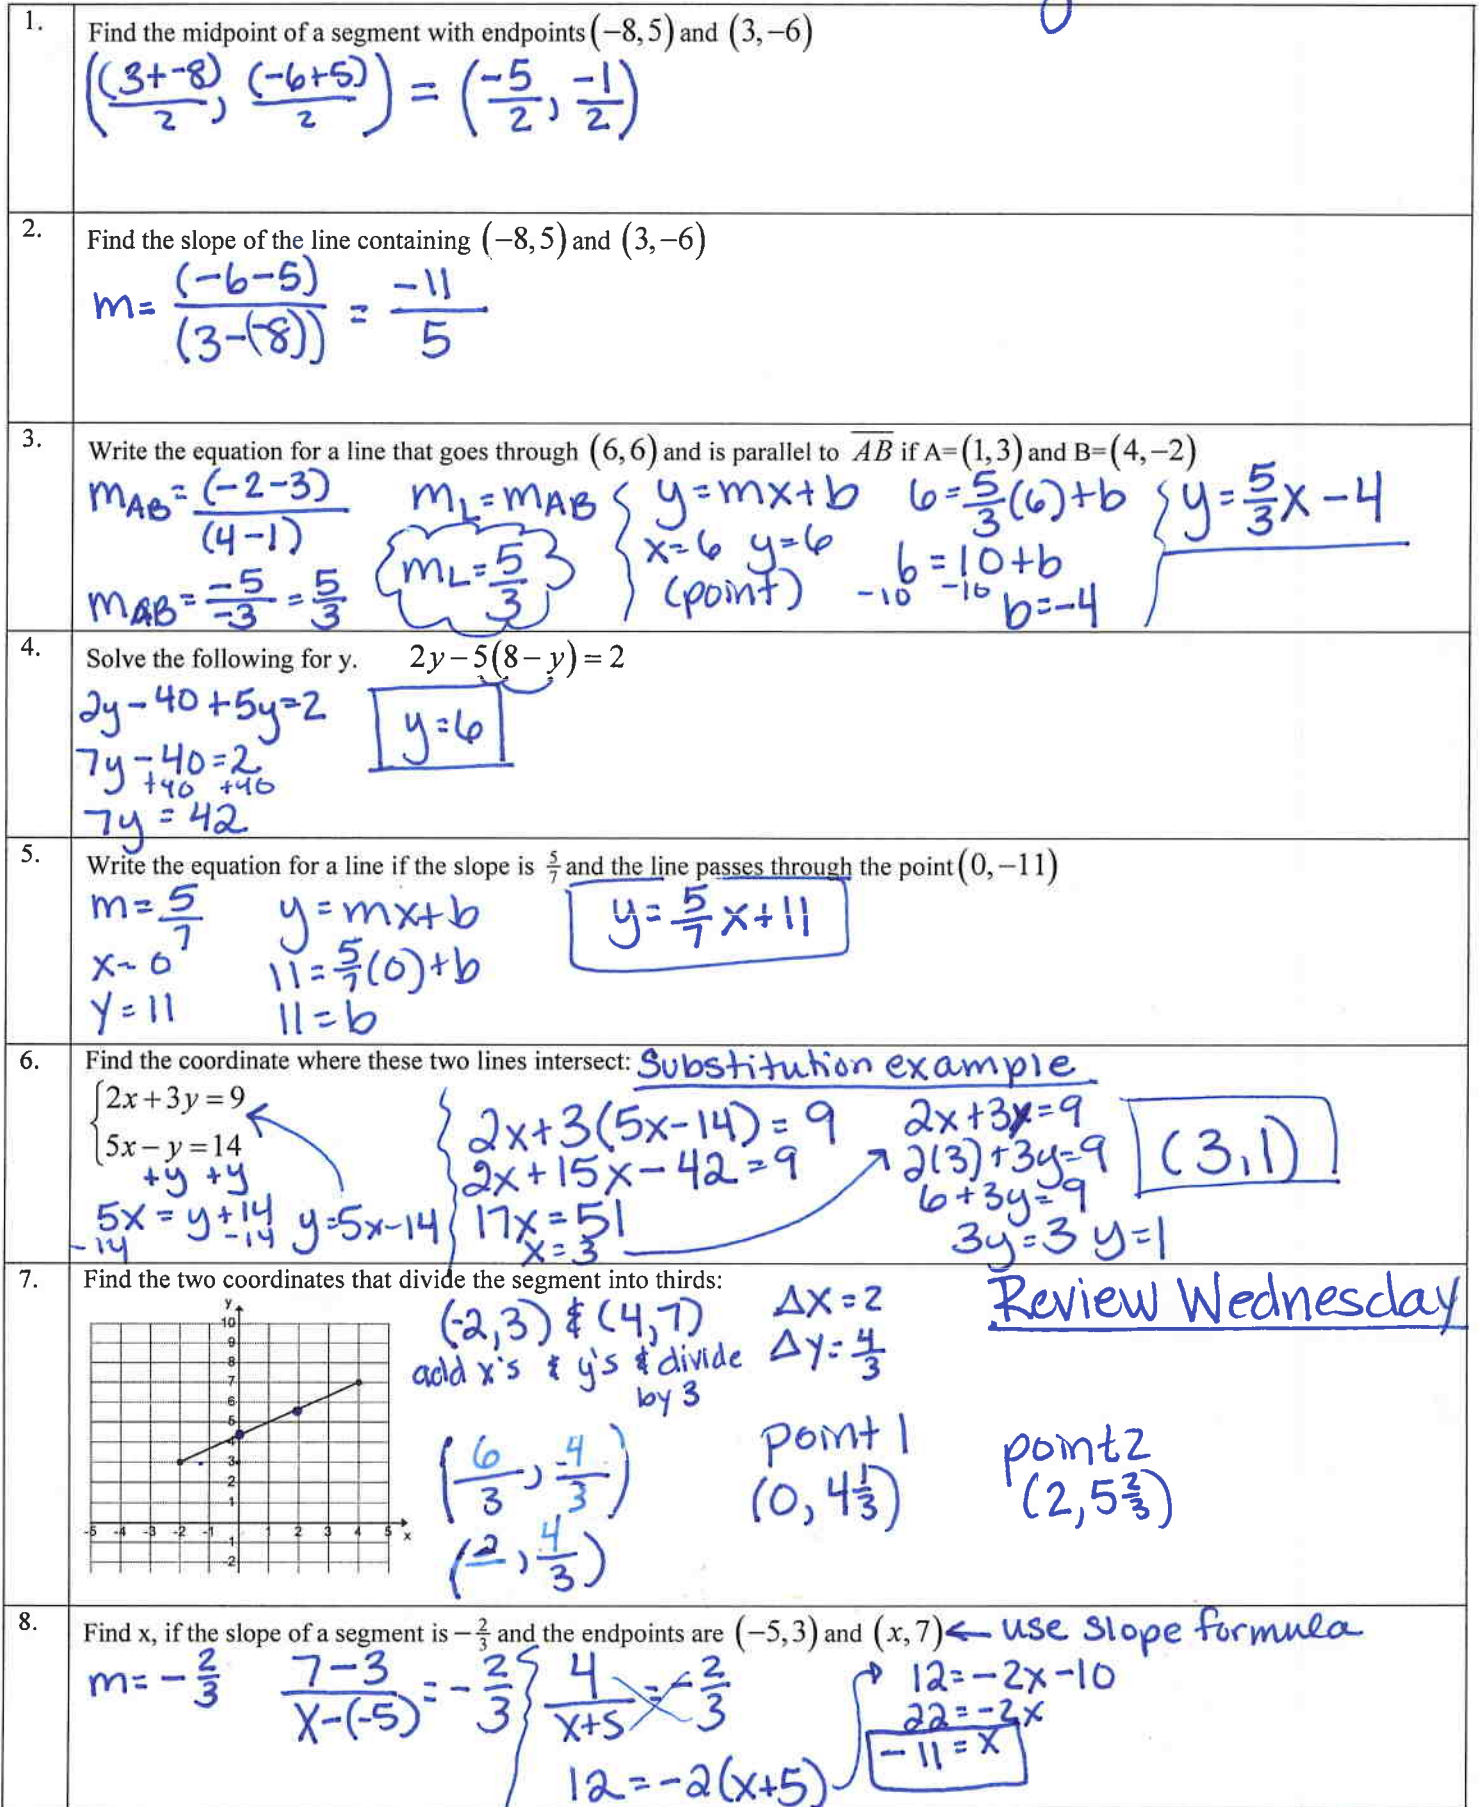 1.
Find the midpoint of a segment with endpoints (−8,5) and (3,−6)
((3+-8)/2, (-6+5)/2) = (-5/2, -1/2)
2.
Find the slope of the line containing (−8,5) and (3,−6)
m= (-6-5)/(3-(-8)) = -11/5
3.
Write the equation for a line that goes through (6,6) and is parallel to AB if A=(1,3) and B=(4,−2)
mAB = (-2-3)/(4-1)
mAB = -5/-3 = 5/3
mL = mAB
mL = 5/3
y=mx+b
x=6 y=6
(point)
6=5/3(6)+b
6=10+b
-10 -10
b=-4
y=5/3x-4
4.
Solve the following for y. 2y−5(8−y)=2
2y-40+5y=2
7y-40=2
+40 +40
7y=42
y=6
5.
Write the equation for a line if the slope is 5/7 and the line passes through the point (0,−11)
m=5/7
x=0
y=11
y=mx+b
11=5/7(0)+b
11=b
y=5/7x+11
6.
Find the coordinate where these two lines intersect: Substitution example
2x+3y=9
5x−y=14
+y +y
5x=y+14 y=5x-14
-14 -14
2x+3(5x-14)=9
2x+15x-42=9
17x=51
x=3
2x+3y=9
2(3)+3y=9
6+3y=9
3y=3 y=1
(3,1)
7.
Find the two coordinates that divide the segment into thirds:
y
10
9
8
7
6
5
4
3
2
1
-5 -4 -3 -2 -1 1 2 3 4 5 x
-1
-2
(-2,3) & (4,7)
add x's & y's & divide
by 3
(6/3, 4/3)
(2, 4/3)
Δx=2
Δy=4/3
point 1
(0, 4 1/3)
point 2
(2, 5 2/3)
Review Wednesday
8.
Find x, if the slope of a segment is −2/3 and the endpoints are (−5,3) and (x,7) ← use slope formula
m=-2/3
(7-3)/(x-(-5)) = -2/3
4/(x+5) = -2/3
12=-2(x+5)
12=-2x-10
22=-2x
-11=x